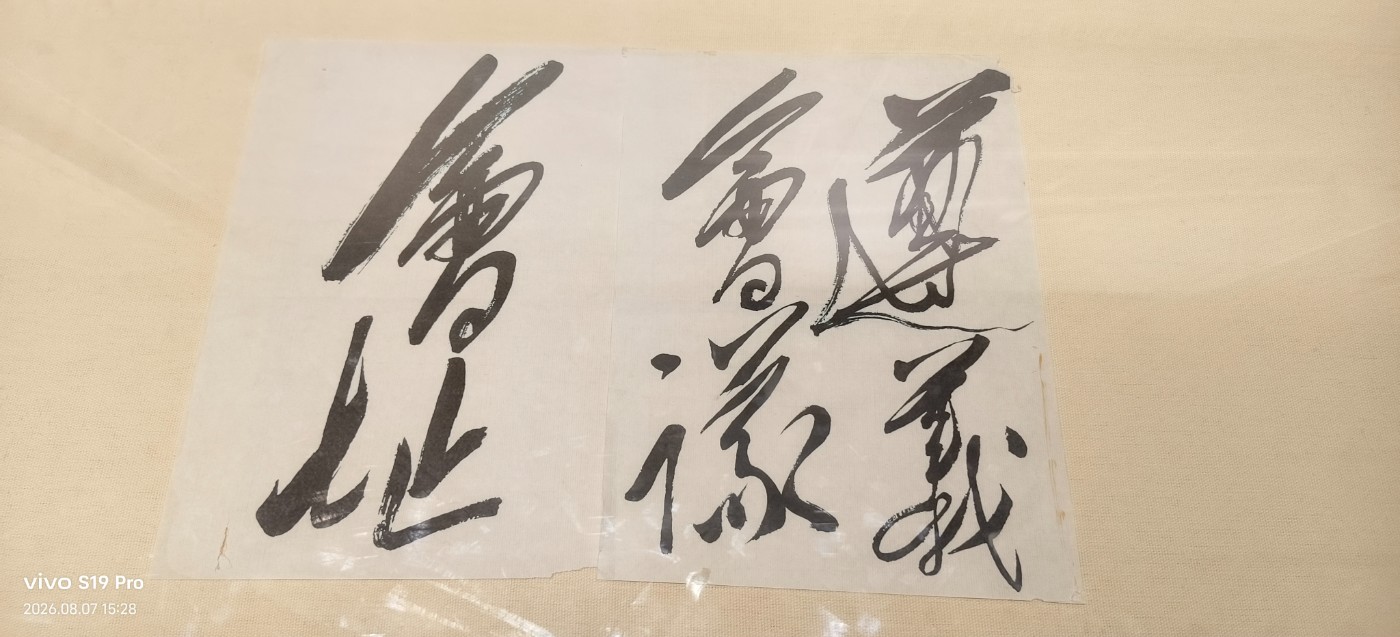 遵義
會議
會址
vivo S19 Pro
2026.08.07 15:28